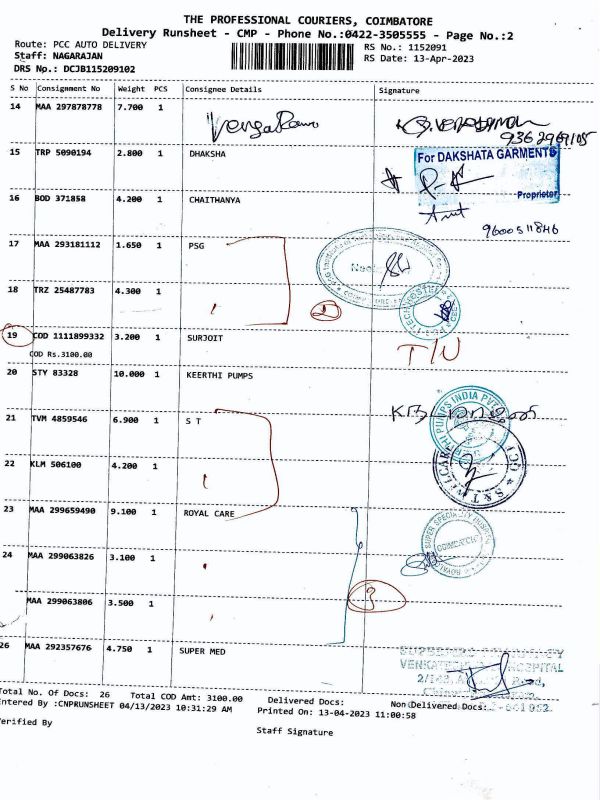 THE PROFESSIONAL COURIERS, COIMBATORE
Delivery Runsheet - CMP - Phone No.:0422-3505555 - Page No.:2
Route: PCC AUTO DELIVERY
RS No.: 1152091
Staff: NAGARAJAN
RS Date: 13-Apr-2023
DRS No.: DCJB115209102
S No Consignment No Weight PCS Consignee Details Signature
14 MAA 297878778 7.700 1
9362969105
15 TRP 5090194 2.800 1 DHAKSHA
For DAKSHATA GARMENTS
Proprietor
16 BOD 371858 4.200 1 CHAITHANYA
9600511846
17 MAA 293181112 1.650 1 PSG
18 TRZ 25487783 4.300 1
2
19 COD 1111899332 3.200 1 SURJOIT
COD Rs.3100.00
20 STY 83328 10.000 1 KEERTHI PUMPS
21 TVM 4859546 6.900 1 S T
22 KLM 506100 4.200 1
23 MAA 299659490 9.100 1 ROYAL CARE
24 MAA 299063826 3.100 1
3
MAA 299063806 3.500 1
26 MAA 292357676 4.750 1 SUPER MED
Total No. Of Docs: 26 Total COD Amt: 3100.00 Delivered Docs: Non Delivered Docs:
Entered By :CNPRUNSHEET 04/13/2023 10:31:29 AM Printed On: 13-04-2023 11:00:58
Verified By
Staff Signature